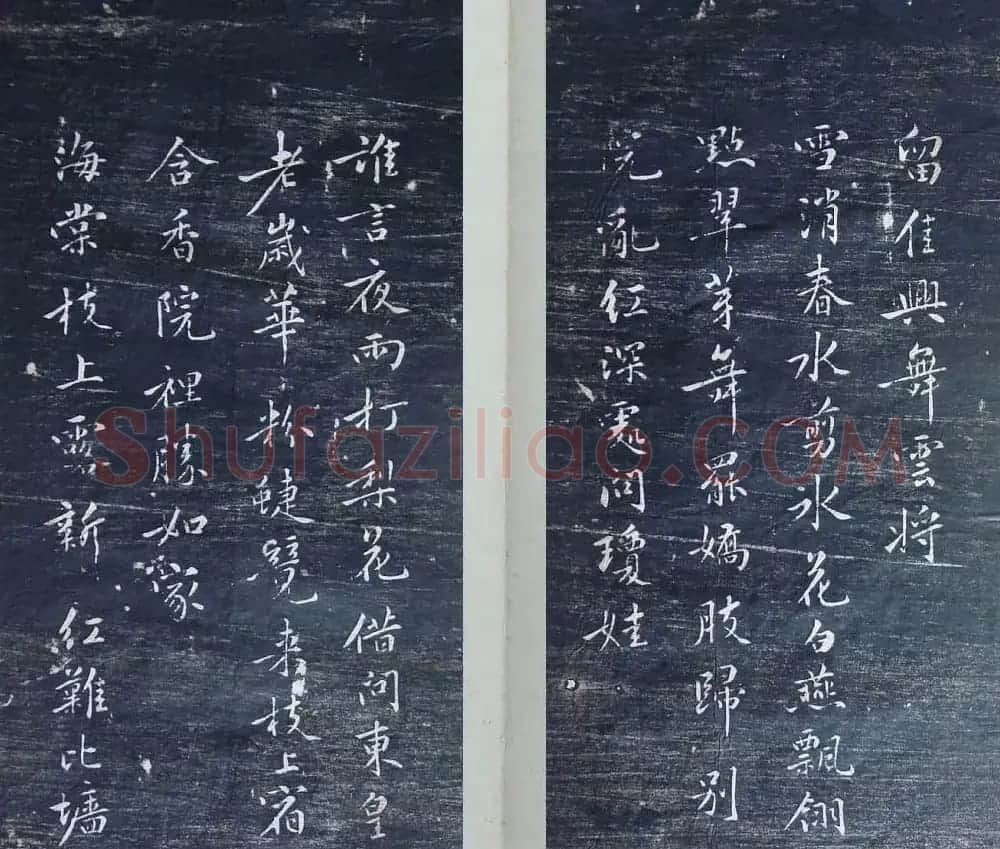 留佳興舞雲將
雪消春水剪氷花白燕飄翎
點翠芽舞罷嬌肢歸別
院亂紅深處問瓊娃
誰言夜雨打梨花借問東皇
老歲華粉蜨覓來枝上宿
含香院裡勝如家
海棠枝上露新紅難比墻
Shufaziliao.COM